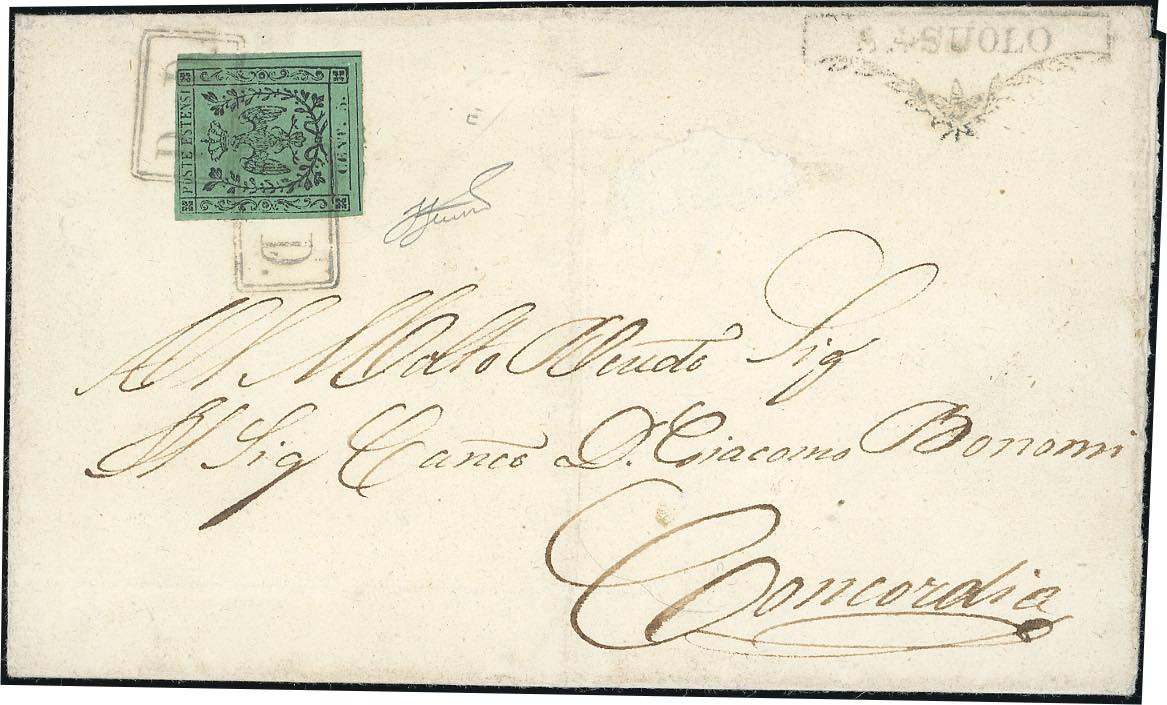 SASSUOLO
P. D.
D.
POSTE ESTENSI
CENT. 5.
Al Molto Revdo Sig
Il Sig Canco D. Giacomo Bonomi
Concordia